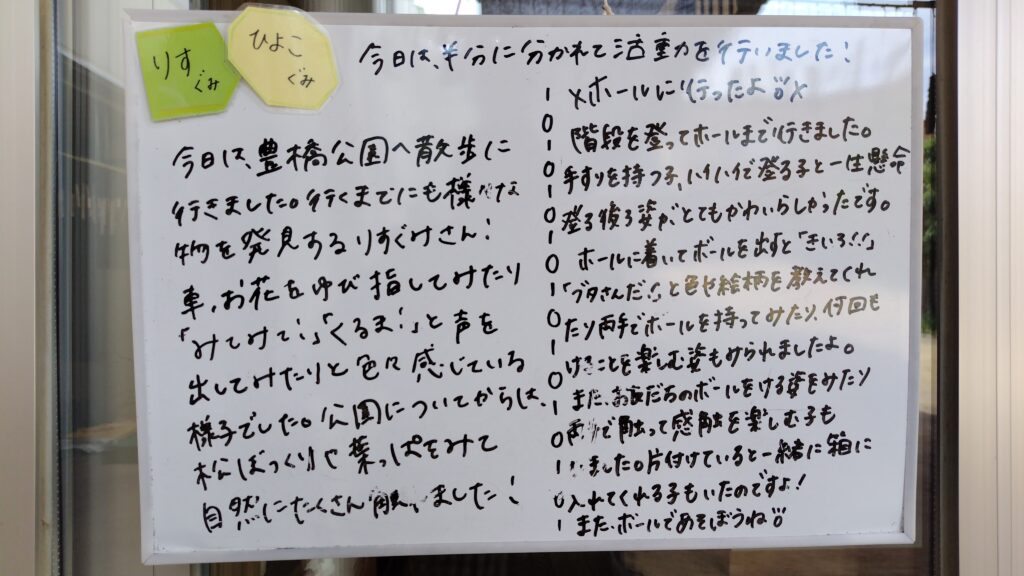 りす
ぐみ
ひよこ
ぐみ
今日は、半分に分かれて活動を行いました!
今日は、豊橋公園へ散歩に
行きました。行くまでにも様々な
物を発見するりすぐみさん!
車、お花をゆび指してみたり
「みてみて!」「くるま!」と声を
出してみたりと色々感じている
様子でした。公園についてからは、
松ぼっくりや葉っぱをみて
自然にたくさん触れました!
×ホールに行ったよ♡×
階段を登ってホールまで行きました。
手すりを持つ子、ハイハイで登る子と一生懸命
登る後ろ姿が、とてもかわいらしかったです。
ホールに着いてボールを出すと「きいろ!!」
「ブタさんだ!」と色や絵柄を教えてくれ
たり両手でボールを持ってみたり、何回も
けることを楽しむ姿もみられましたよ。
また、お友だちのボールをける姿をみたり
で触って感触を楽しむ子も
いました。片付けていると一緒に箱に
入れてくれる子もいたのですよ!
また、ボールであそぼうね♡